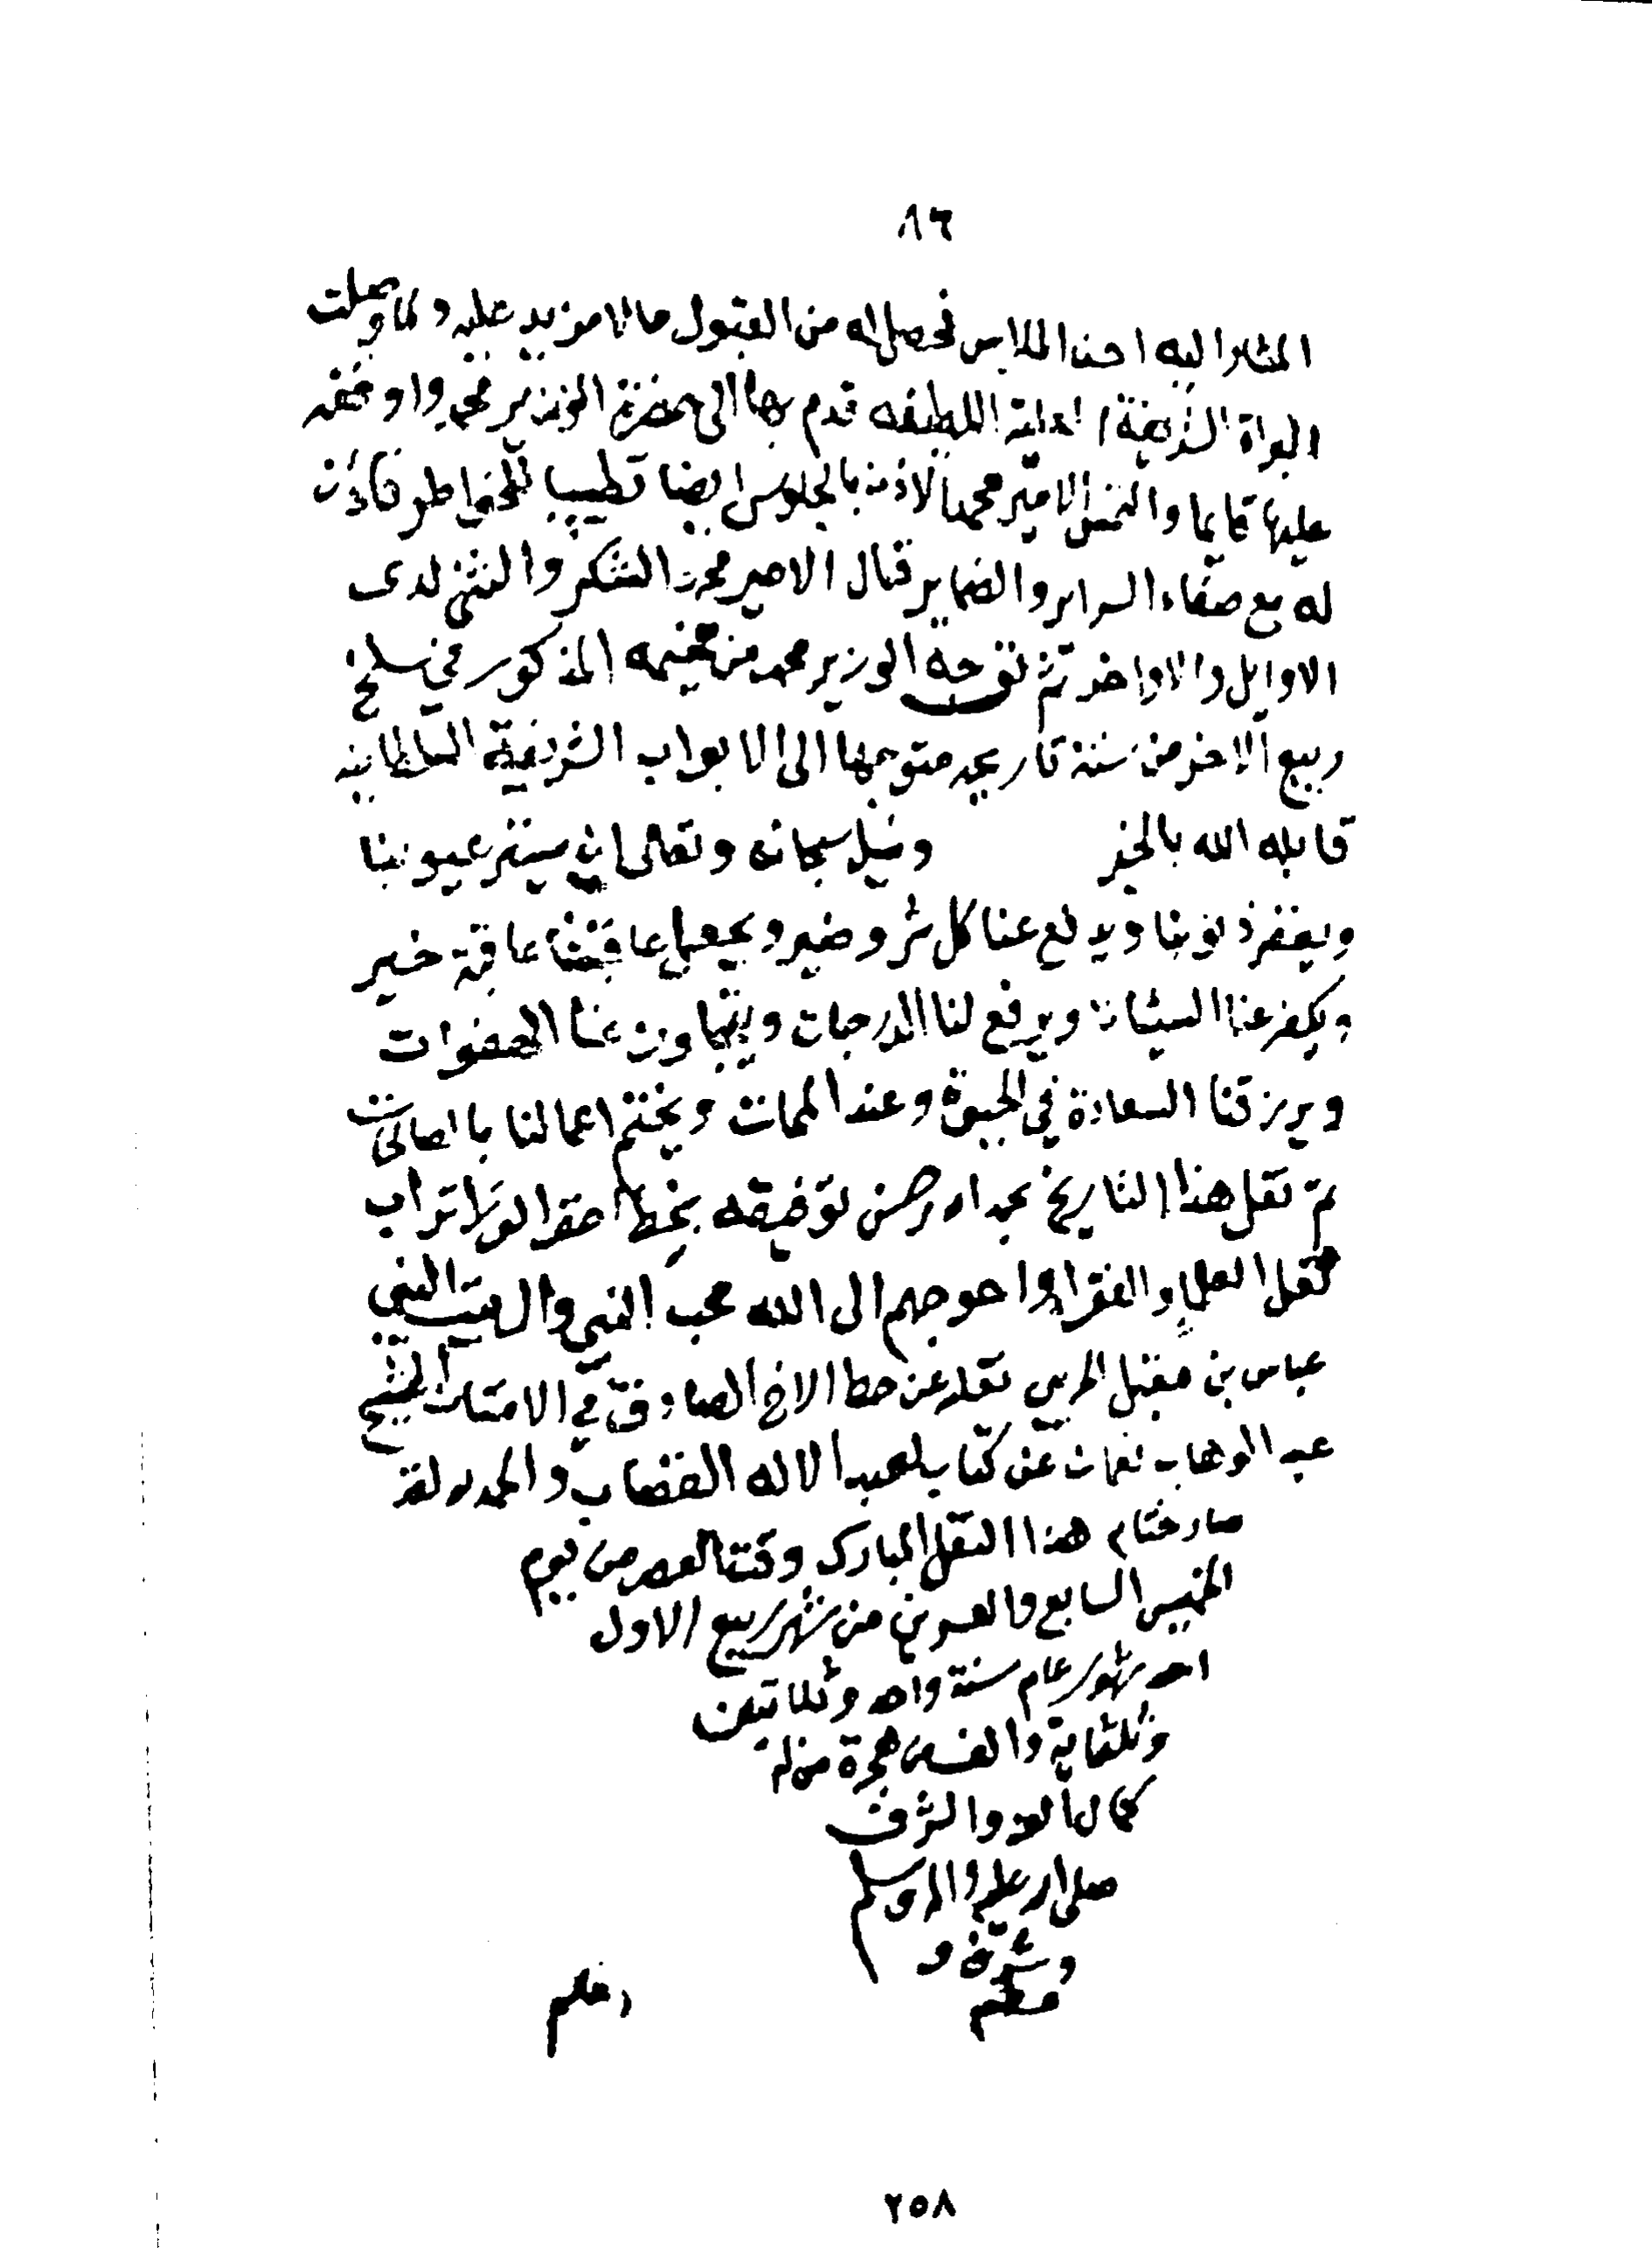 ٨٦
المشار اليه احسن الملابس فحصل له من القبول ما لا مزيد عليه ولما وصلت
البراة الشريفة اللطيفه قدم بها الى حضرة الوزير محمد واوقفه
عليها قايما والتمس الامير محمد الاذن بالجلوس ايضا تطييبا للخاطر فاذن
له مع صفاء السراير والضماير فنال الامير محمد الشكر والثنى لدى
الاوايل والاواخر ثم توجه الوزير محمد من مخيمه المذكور في سلخ
ربيع الاخر من سنة تاريخه متوجها الى الابواب الشريفة السلطانيه
قابله الله بالخير ونسٔل سبحانه وتعالى ان يستر عيوبنا
ويغفر ذنوبنا ويدفع عنا كل شر وضير ويجعل عاقبتنا عاقبة خير
ويكفر عنا السيئات ويرفع لنا الدرجات ويتجاوز عنا الهفوات
ويرزقنا السعادة في الحيوة وعند الممات ويختم اعمالنا بالصالحات
تم نقل هذا التاريخ بحمد الله وحسن توفيقه بخط احقر الورى تراب
نعل العلماء والفقراء واحوجهم الى الله محب النبي وال بيت النبي
عباس بن مقبل نقله عن خط الاخ الصادق في الشيخ
عبد الوهاب نعمان عن كتاب لعبد الاله القصاب والحمد لله
صار ختام هذا النقل المبارك وقت العصر من يوم
الخميس السابع والعشرين من شهر ربيع الاول
احد شهور عام سنة واحد وثلاثين
وثلثماية والف من هجرة من له
كمال والشرف
صلى الله عليه واله وسلم
وشرف و
عظم
٢٥٨